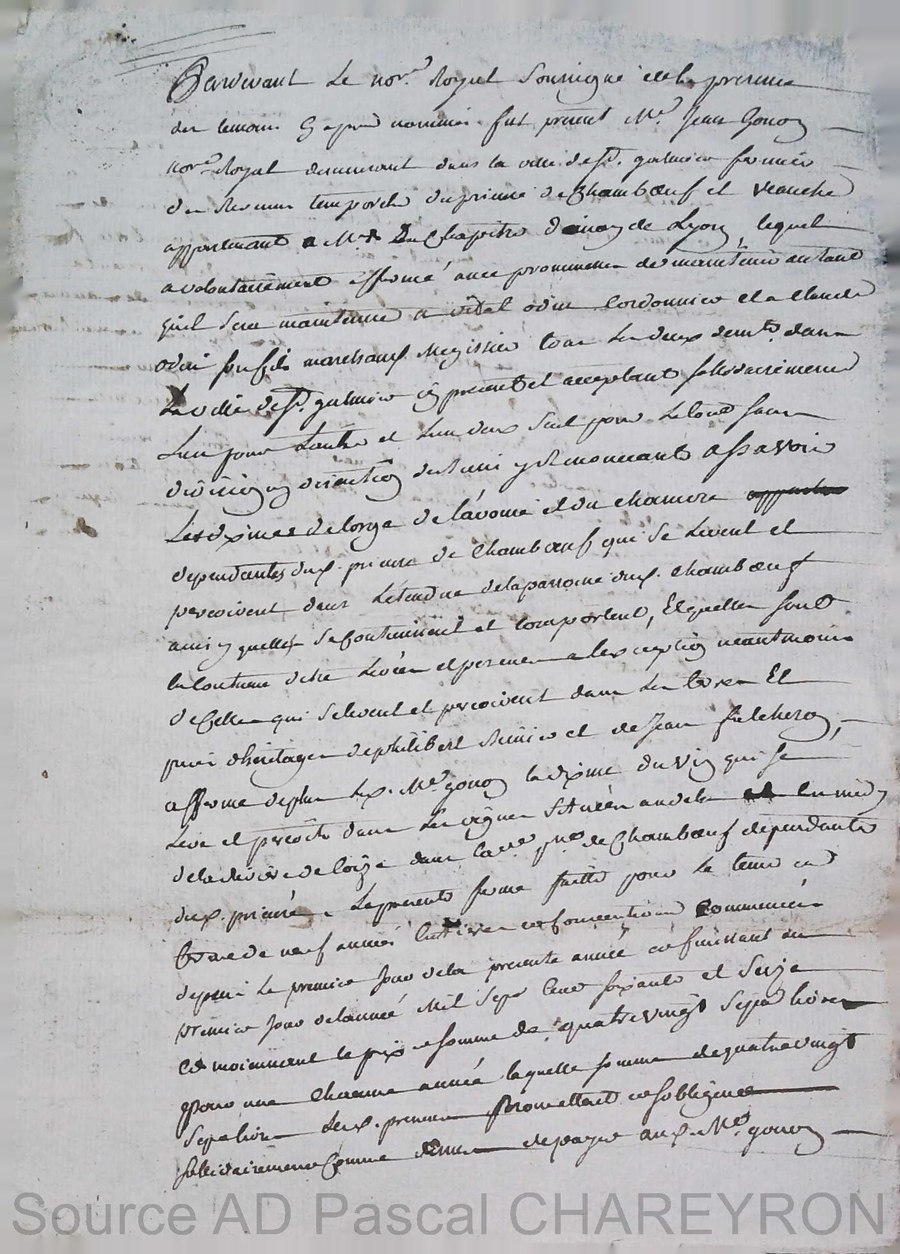 Pardevant Le nore Royal Soussigné et de la presence
des temoins Cy apres nommés fut present Me. Jean Gonon
nore Royal demeurant dans la ville de St. galmier fermier
des Revenus temporels du prieuré de Chambœuf et Veauche
appartenant a Mrs Du Chapitre D'ainay de Lyon, lequel
a volontairement affermé avec promesse de maintenir autant
qu'il sera maintenu a vital odin Cordonnier et a Claude
odin son fils marchand Megissier tous Les deux demts. dans
La ville de St. galmier Cy present et acceptant sollidairement
L'un pour L'autre et L'un deux seul pour Le tout sans
division ny discution de biens y Renonceant assavoir
Les dixmes de l'orge de l'avoine et du chanvre
dependantes dud. prieuré de Chambœuf qui se Levent et
percoivent dans L'étendue de la parroisse dud. Chambœuf
ainsy quelles se Contiennent et comportent, Et quelles sont
en Coutume d'etre Levées et percues a l'exception neantmoins
de Celles qui se levent et percoivent dans Les terres Et
prés d'héritages de philibert et de Jean
afferme de plus Led. Me. gonon la dixme du vin qui se
Leve et percoit dans Les vignes Situées audela
de la riviere de Coize dans lad. pse. de Chambœuf dependante
dud. prieuré. La presente ferme faitte pour Le tems et
terme de neuf années Entieres et Consecutives Commencées
depuis Le premier Jour de la presente année et finissant au
premier Jour de l'année Mil Sept Cent soixante et Seize
Et moiennant le prix et somme de quatre vingt Sept livres
pour une Chacune année laquelle somme de quatre vingt
Sept livres Les d. preneurs promettent et s'obligent
sollidairement Comme dessus de payer aud. Me. gonon
Source AD Pascal CHAREYRON